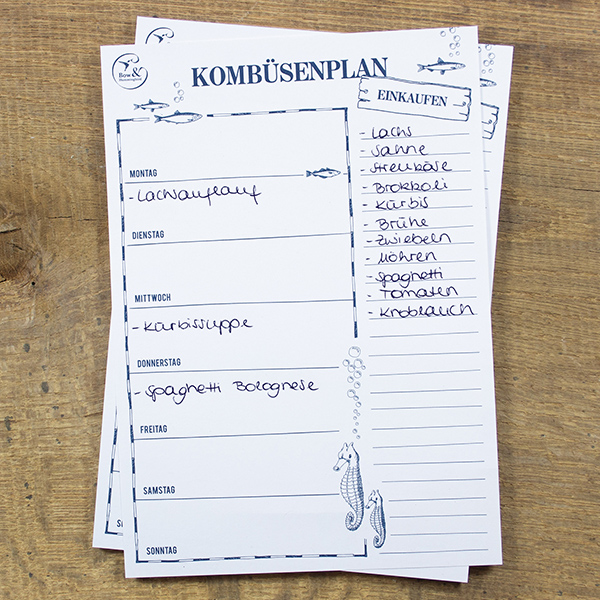 Bow &
KOMBÜSENPLAN
MONTAG
- Lachsauflauf
DIENSTAG
MITTWOCH
- Kürbissuppe
DONNERSTAG
- Spaghetti Bolognese
FREITAG
SAMSTAG
SONNTAG
EINKAUFEN
- Lachs
- Sahne
- Streukäse
- Brokkoli
- Kürbis
- Brühe
- Zwiebeln
- Möhren
- Spaghetti
- Tomaten
- Knoblauch